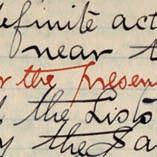 definite act
near t
r the presen
d the Lists
y the Sa